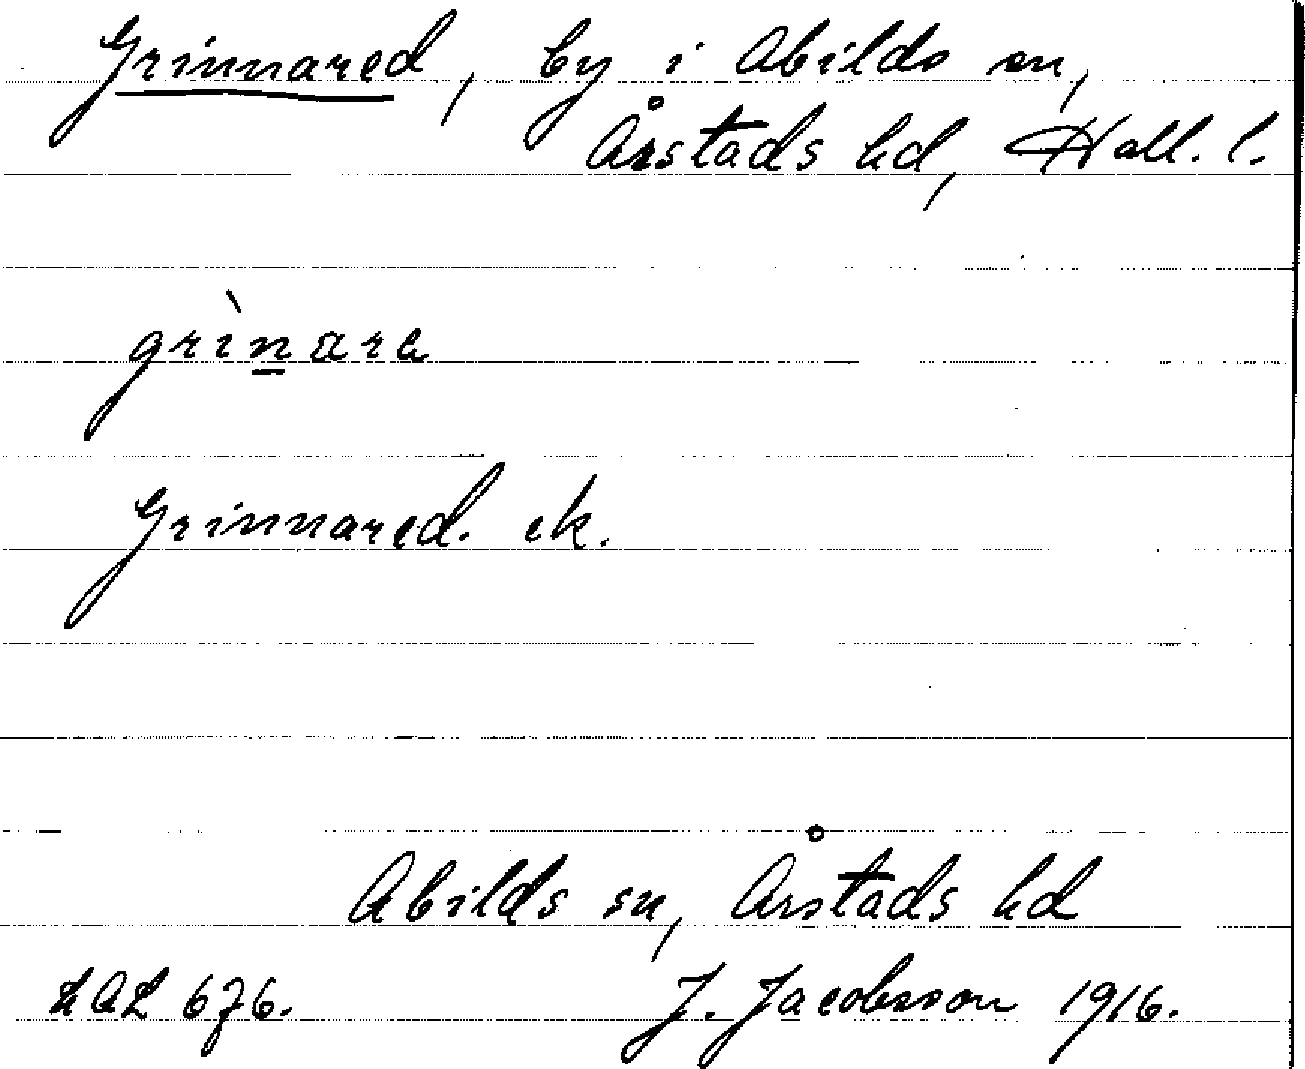 Grinnared, by i Abilds sn,
Årstads hd, Hall. l.
grìnara
Grinnared. ek.
Abilds sn, Årstads hd
LAL 676. J. Jacobsson 1916.